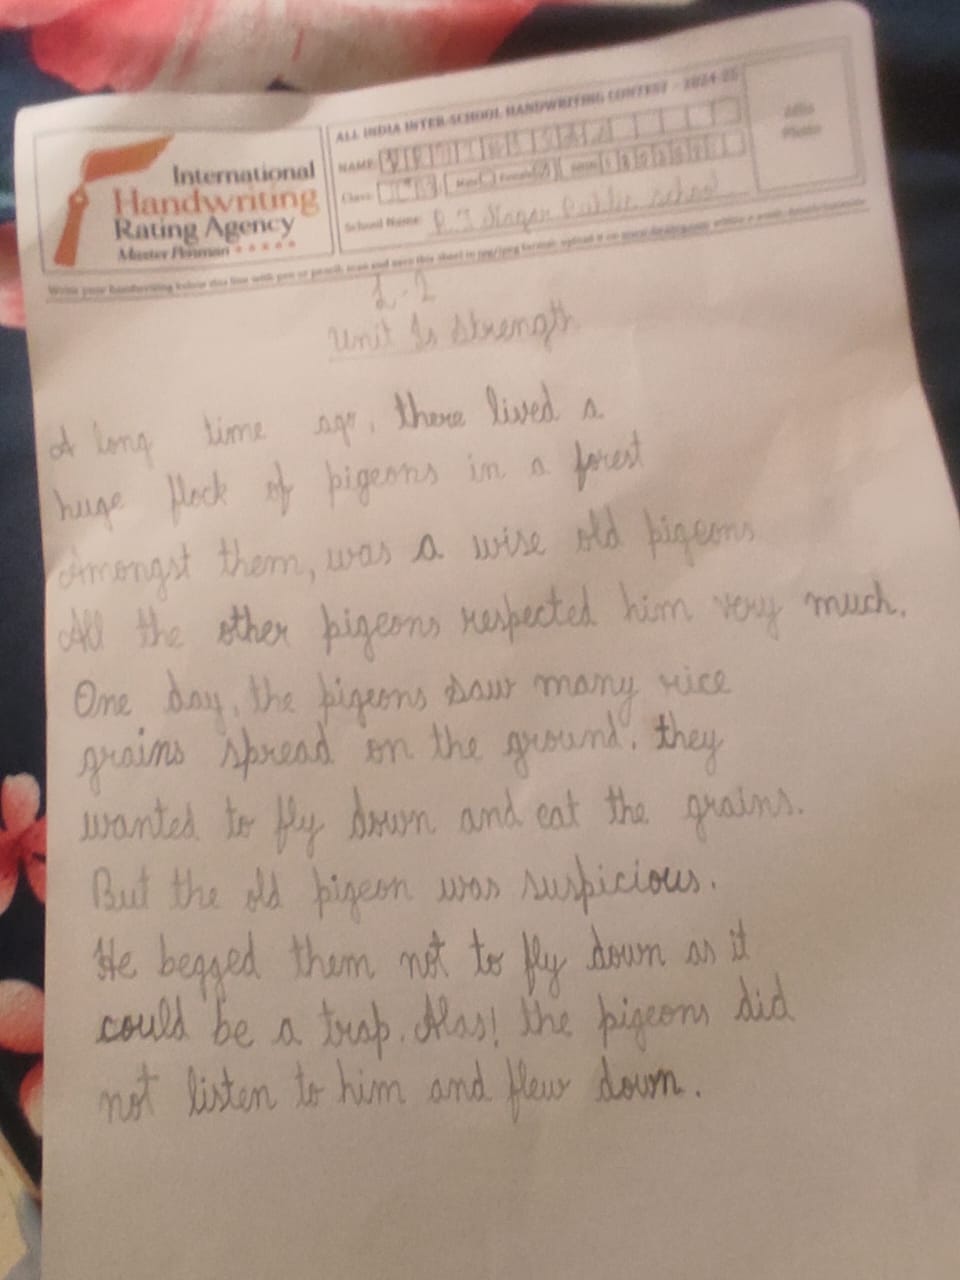 International
Handwriting
Rating Agency
Master Penman
ALL INDIA INTER-SCHOOL HANDWRITING CONTEST - 2024-25
NAME:
Class:
Male Female
School Name: R.J Nagar Public School
Affix
Photo
Write your handwriting below this line with pen or pencil,
L-2
Unit Is Strength
A long time ago, there lived a
huge flock of pigeons in a forest
Amongst them, was a wise old pigeons
All the other pigeons respected him very much.
One day, the pigeons saw many rice
grains spread on the ground. they
wanted to fly down and eat the grains.
But the old pigeon was suspicious.
He begged them not to fly down as it
could be a trap. Alas! the pigeons did
not listen to him and flew down.